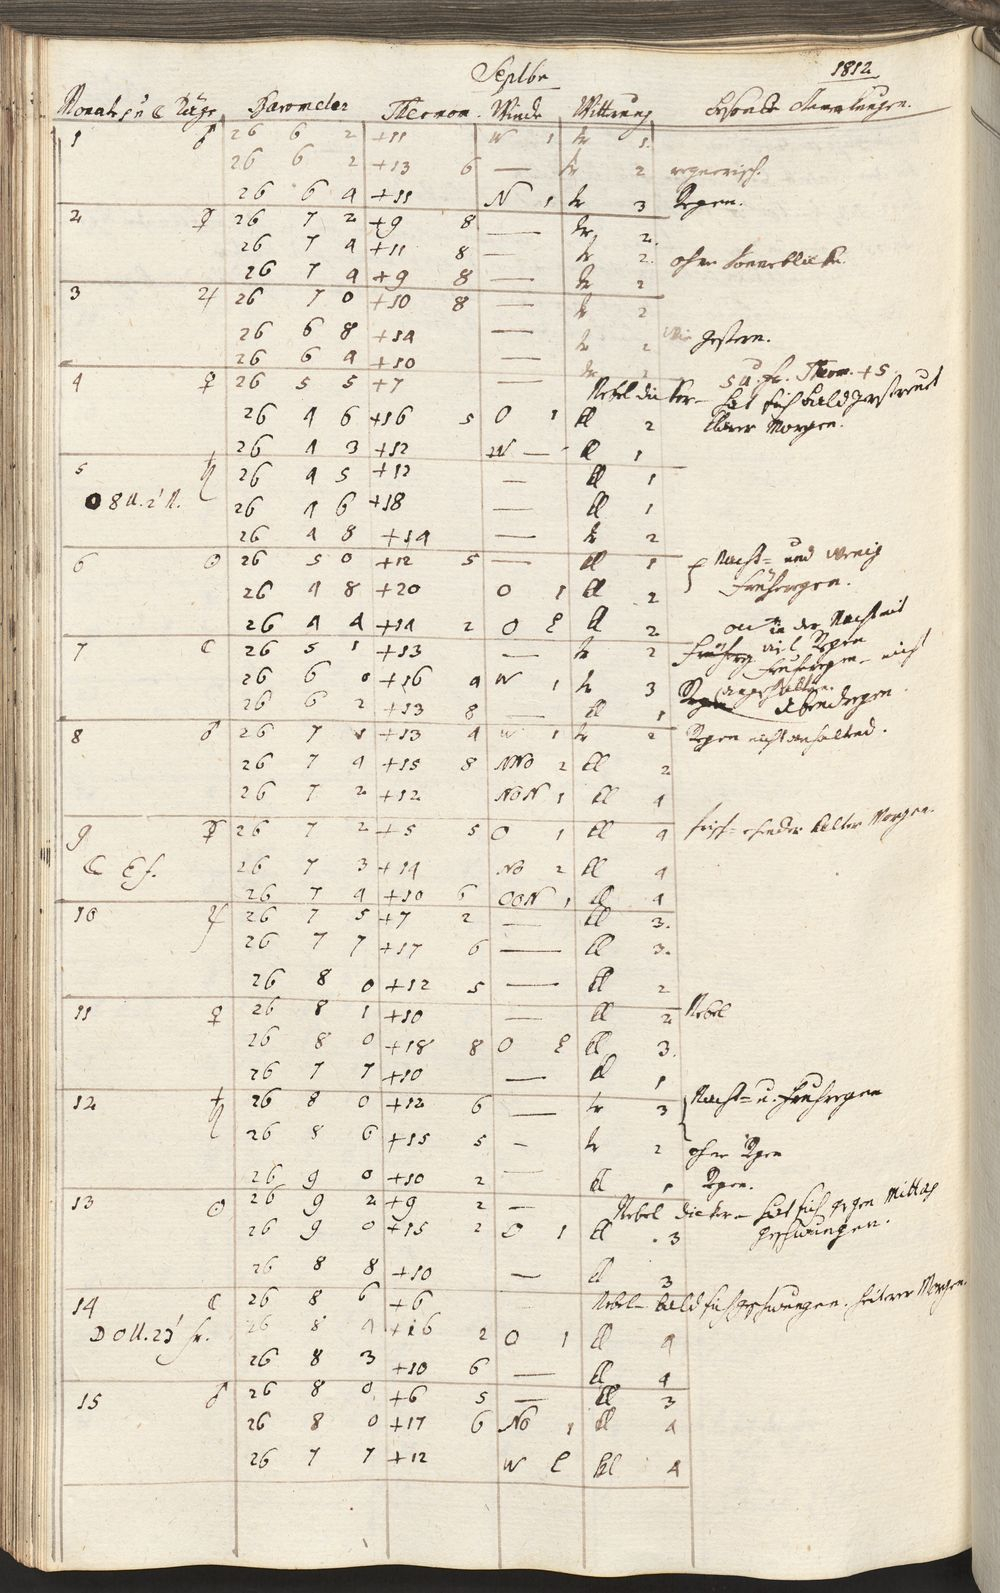 Septbr 1812
Monats u ☾ Täge Barometer Thermom. Winde Wittrung Besondre Anmerkungen.
1 ♂ 26 6 2 +11 W 1 tr 1.
26 6 2 +13 6 — tr 2 regnerisch.
26 6 4 +11 N 1 tr 3 Regen.
2 ☿ 26 7 2 +9 8 — tr 2.
26 7 4 +11 8 — tr 2. ohne Sonnenblicke.
26 7 4 +9 8 — tr 2
3 ♃ 26 7 0 +10 8 — tr 2
26 6 8 +14 — tr 2 wie gestern.
26 6 4 +10 — tr 2
4 ♀ 26 5 5 +7 — Nebel dicker – hat sich bald zerstreut 5 U. fr. Therm. +5
26 4 6 +16 5 O 1 kl 2 klarer Morgen.
26 4 3 +12 W — kl 1
5 ♄ 26 4 5 +12 — kl 1
● 8 U. 2' N. 26 4 6 +18 — kl 1
26 4 8 +14 — tr 2
6 ☉ 26 5 0 +12 5 — kl 1 Nacht= und wenig
26 4 8 +20 O 1 kl 2 Frühregen.
26 4 4 +14 2 O E kl 2
7 ☾ 26 5 1 +13 — tr 2 in der Nacht mit viel Regen
26 6 0 +16 4 W 1 tr 3 Frühregen – nicht angehalten.
26 6 2 +13 8 — kl 1 Abendregen.
8 ♂ 26 7 1 +13 4 W 1 tr 2 Regen nicht anhaltend.
26 7 4 +15 8 NNO 2 kl 2
26 7 2 +12 NON 1 kl 4
9 ☿ 26 7 2 +5 5 O 1 kl 4 kalter Morgen.
☾ Ef. 26 7 3 +14 NO 2 kl 4
26 7 4 +10 6 OON 1 kl 4
10 ♃ 26 7 5 +7 2 — kl 3.
26 7 7 +17 6 — kl 3.
26 8 0 +12 5 — kl 2
11 ♀ 26 8 1 +10 — kl 2 Nebel
26 8 0 +18 8 O E kl 3.
26 7 7 +10 — kl 1
12 ♄ 26 8 0 +12 6 — tr 3 Nacht= u. Frühregen
26 8 6 +15 5 — tr 2 ohne Regen
26 9 0 +10 2 — kl 1 Regen.
13 ☉ 26 9 2 +9 2 — Nebel dicker – hat sich gegen Mittag
26 9 0 +15 2 O 1 kl 3 geschwungen.
26 8 8 +10 — kl 3
14 ☾ 26 8 6 +6 Nebel – bald sich geschwungen. heiterer Morgen.
D 0 U. 23' fr. 26 8 4 +16 2 O 1 kl 4
26 8 3 +10 6 — kl 4
15 ♂ 26 8 0 +6 5 — kl 3
26 8 0 +17 6 NO 1 kl 4
26 7 7 +12 W E kl 4